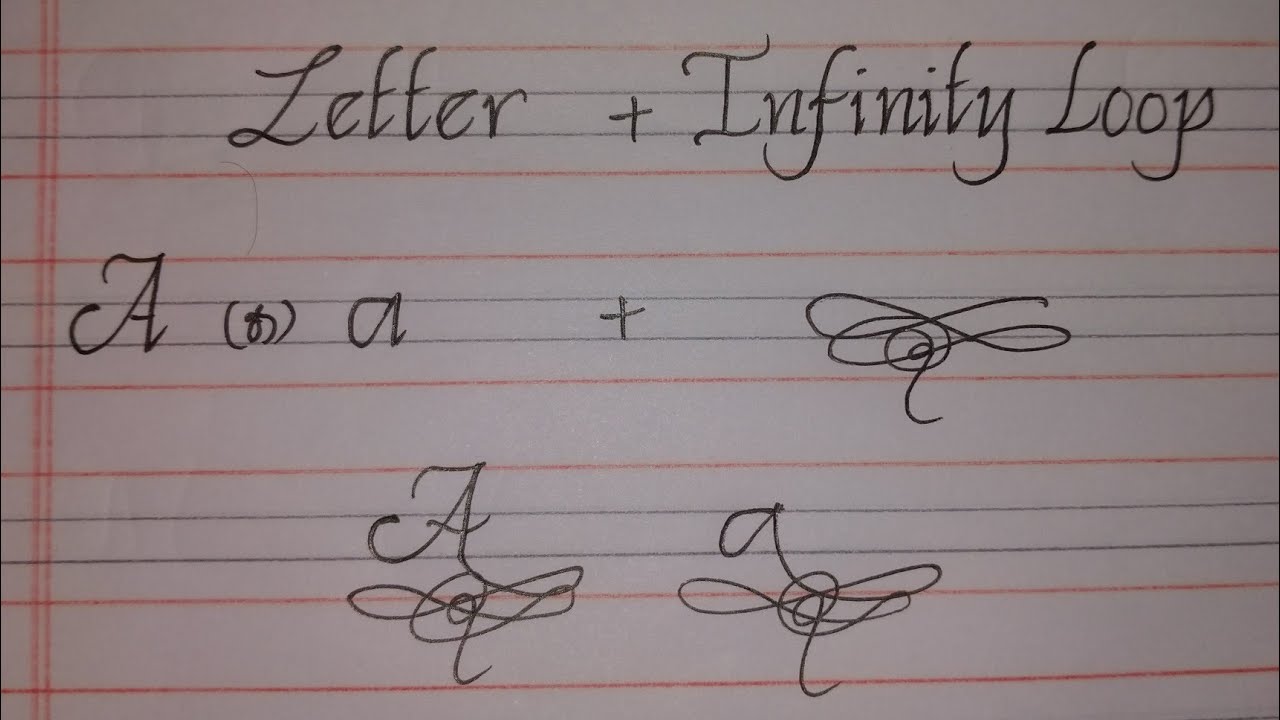 Letter + Infinity Loop
A (or) a +
A a